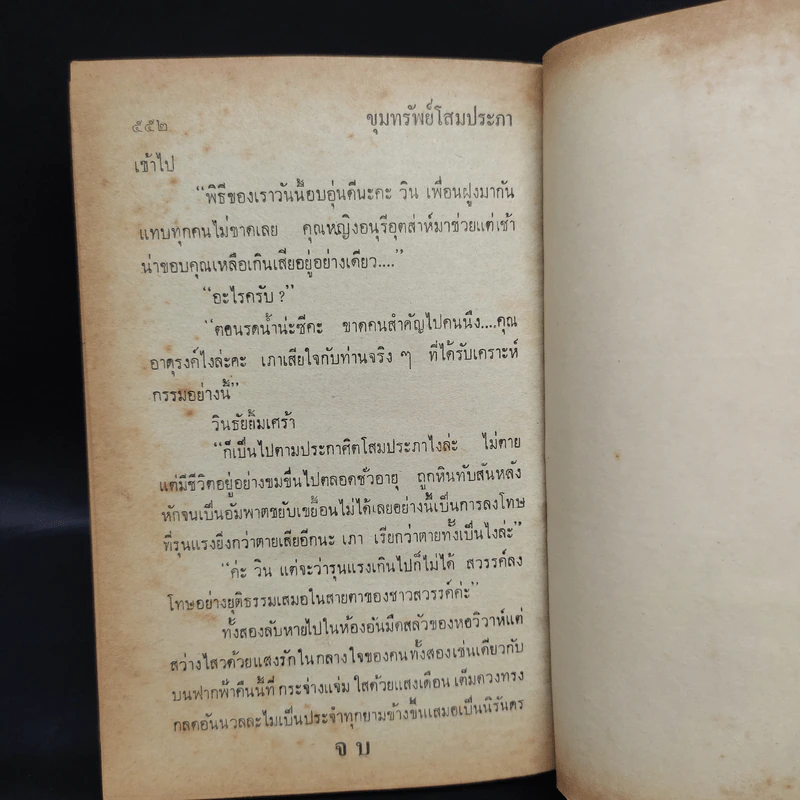 ๕๕๒
ขุมทรัพย์โสมประภา
เข้าไป
“พิธีของเราวันนี้อบอุ่นดีนะคะ วิน เพื่อนฝูงมากัน
แทบทุกคนไม่ขาดเลย คุณหญิงอนุรีอุตส่าห์มาช่วยแต่เช้า
น่าขอบคุณเหลือเกินเสียอยู่อย่างเดียว....”
“อะไรครับ ?”
“ตอนรดน้ำน่ะซีคะ ขาดคนสำคัญไปคนนึง....คุณ
อาดุรงค์ไงล่ะคะ เภาเสียใจกับท่านจริง ๆ ที่ได้รับเคราะห์
กรรมอย่างนี้”
วินธัยยิ้มเศร้า
“ก็เป็นไปตามประกาศิตโสมประภาไงล่ะ ไม่ตาย
แต่มีชีวิตอยู่อย่างขมขื่นไปตลอดชั่วอายุ ถูกหินทับสันหลัง
หักจนเป็นอัมพาตขยับเขยื้อนไม่ได้เลยอย่างนี้เป็นการลงโทษ
ที่รุนแรงยิ่งกว่าตายเสียอีกนะ เภา เรียกว่าตายทั้งเป็นไงล่ะ”
“ค่ะ วิน แต่จะว่ารุนแรงเกินไปก็ไม่ได้ สวรรค์ลง
โทษอย่างยุติธรรมเสมอในสายตาของชาวสวรรค์ค่ะ”
ทั้งสองลับหายไปในห้องอันมืดสลัวของหอวิวาห์แต่
สว่างไสวด้วยแสงรักในกลางใจของคนทั้งสองเช่นเดียวกับ
บนฟากฟ้าคืนนี้ที่ กระจ่างแจ่ม ใสด้วยแสงเดือน เต็มดวงทรง
กลดอันนวลละไมเป็นประจำทุกยามข้างขึ้นเสมอเป็นนิรันดร
จบ